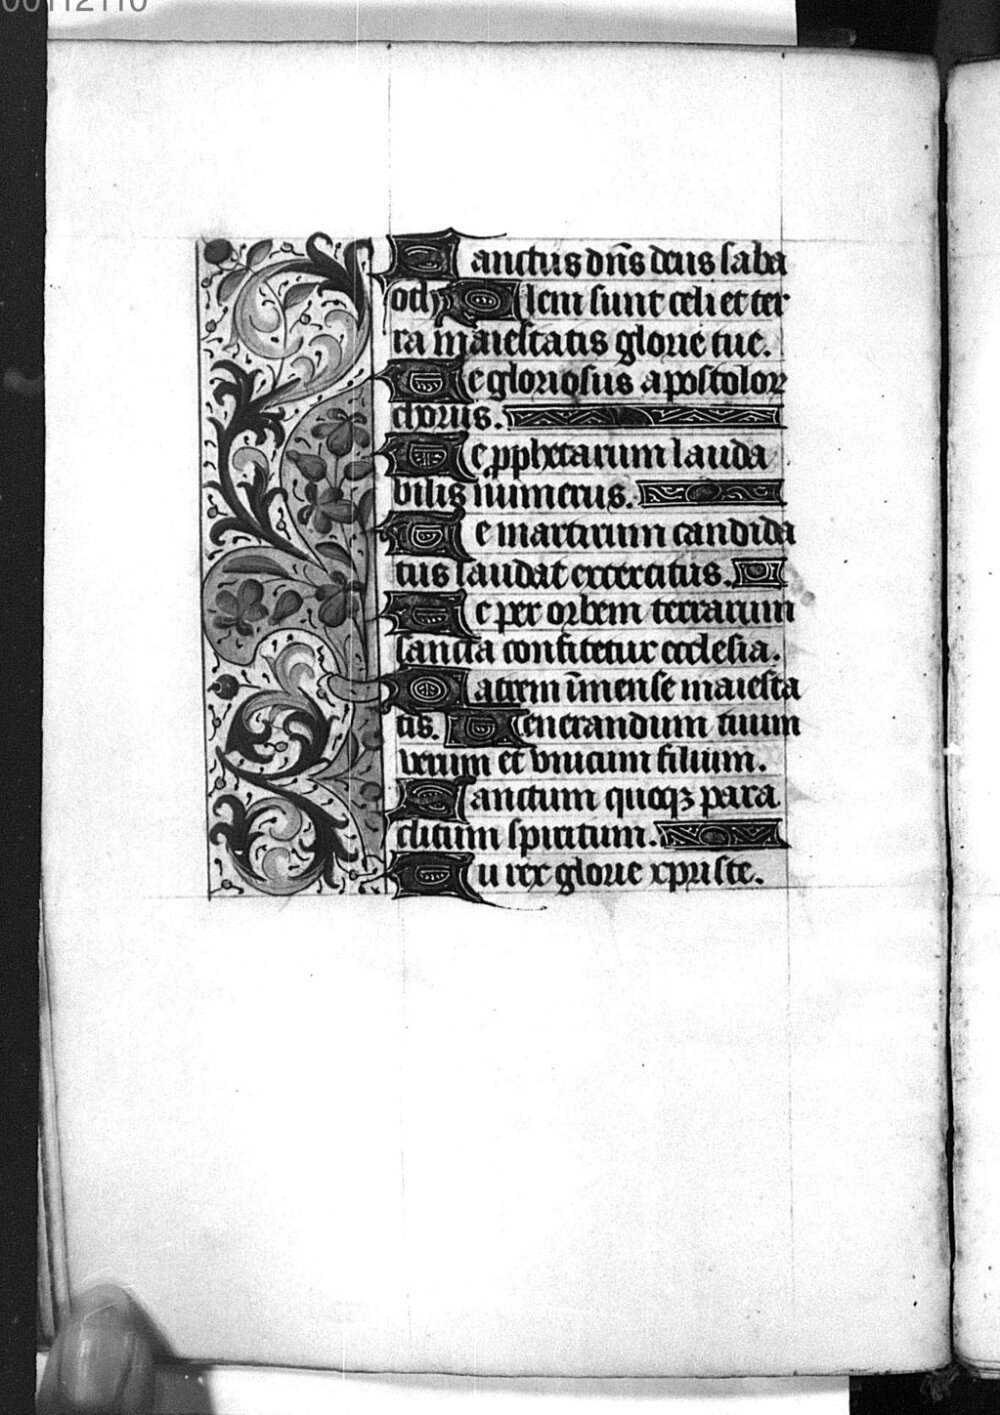 00112110
Sanctus dn̄s deus saba
oth Plem sunt celi et ter
ra maiestatis glorie tue.
Te gloriosus apostolorꝝ
chorus.
Te ꝓphetarum lauda
bilis numerus.
Te martirum candida
tus laudat excercitus.
Te per orbem terrarum
sancta confitetur ecclesia.
Patrem īmense maiesta
tis. Venerandum tuum
verum et vnicum filium.
Sanctum quoqꝫ para
clitum spiritum.
Tu rex glorie xpriste.